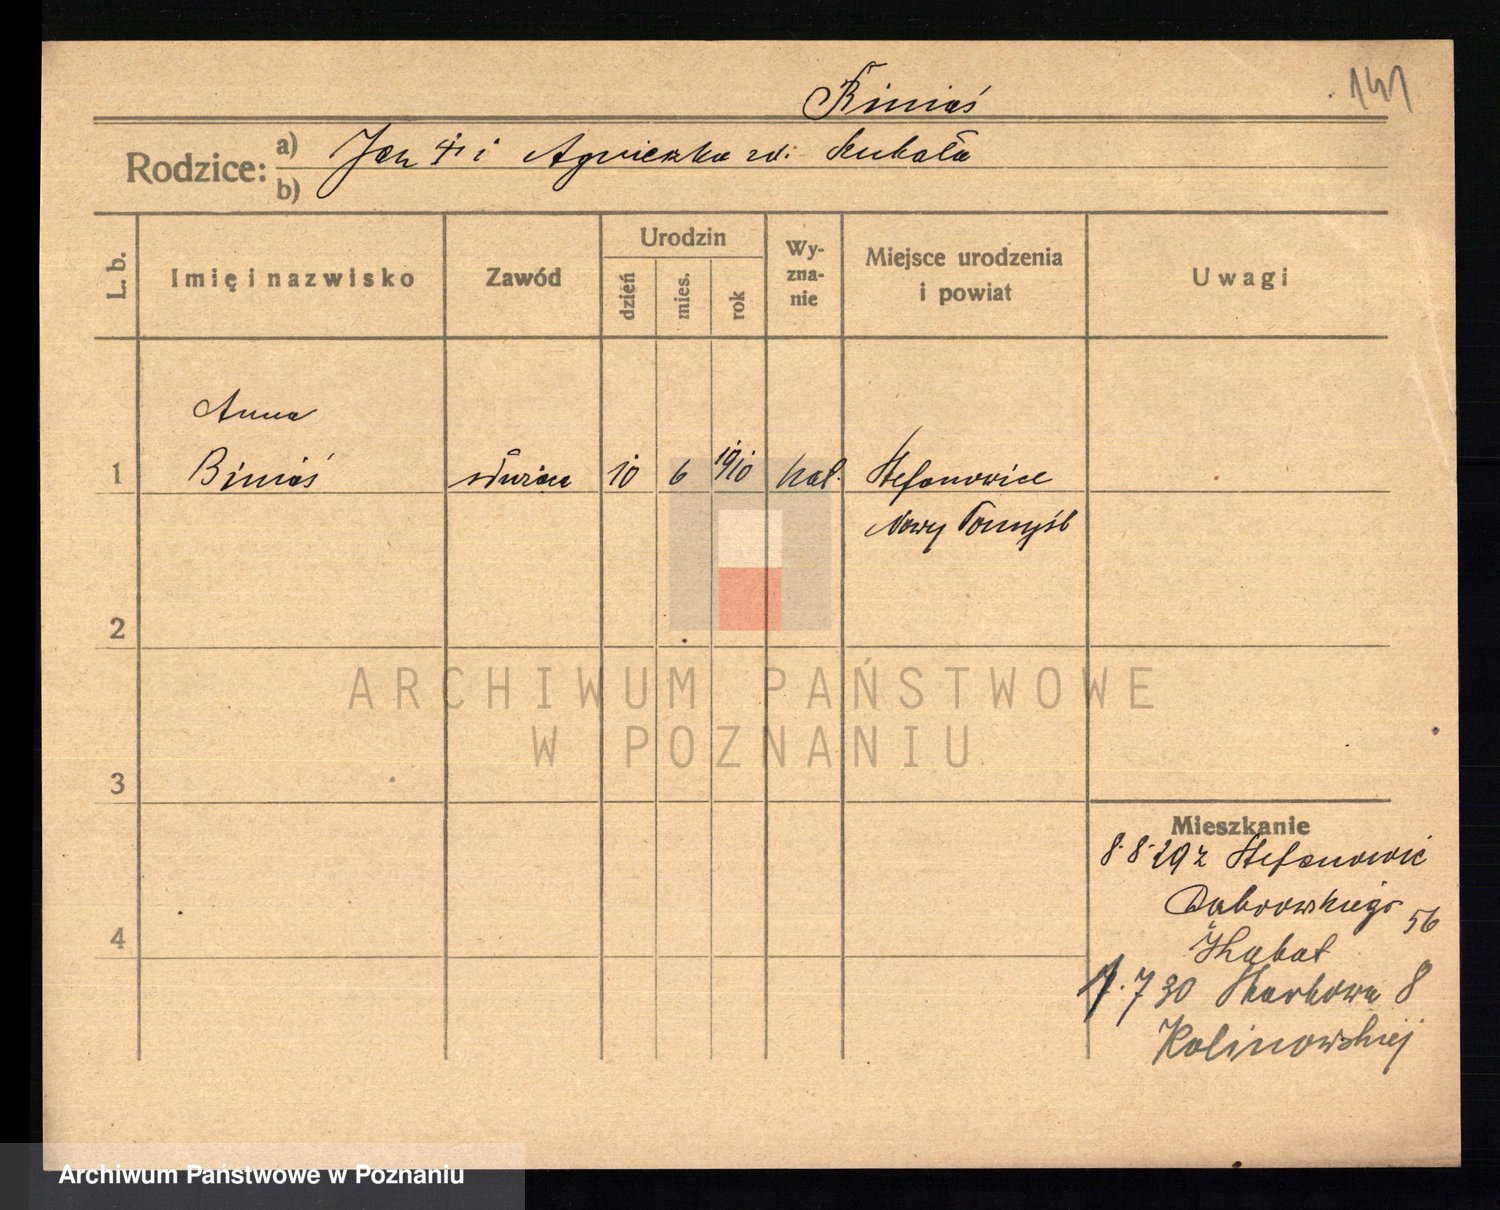 Biniaś
141
Rodzice: a) Jan + i Agnieszka zd. Kubała
b)
L. b.
Imię i nazwisko
Zawód
Urodzin
dzień
mies.
rok
Wy-
zna-
nie
Miejsce urodzenia
i powiat
Uwagi
Anna
1 Biniaś służąca 10 6 1910 kat. Stefanowice
Nowy Tomyśl
2
ARCHIWUM PAŃSTWOWE
W POZNANIU
3
Mieszkanie
8.8.29 z Stefanowic
Dąbrowskiego 56
4
7.7 30 Skarbowa 8
Kalinowskiej
Archiwum Państwowe w Poznaniu